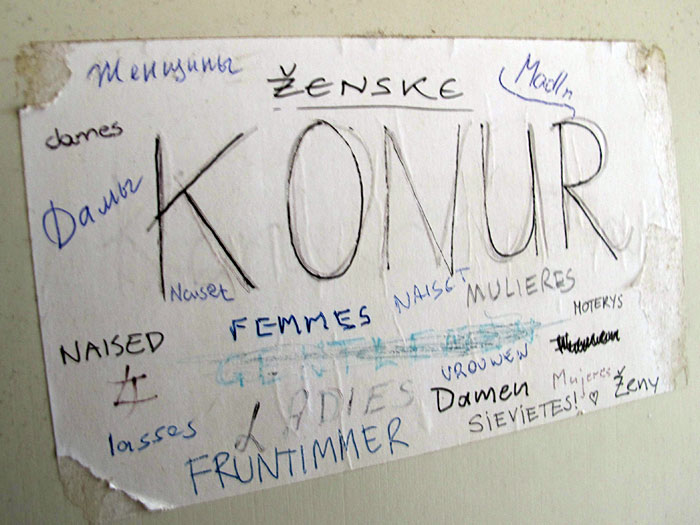 Женщины
ŽENSKE
Madln
dames
KONUR
Дамы
Naiset
NAISET
MULIERES
FEMMES
MOTERYS
NAISED
GENTLEMEN
VROUWEN
女
Damen
Mujeres
Ženy
LADIES
SIEVIETES!
lasses
FRUNTIMMER